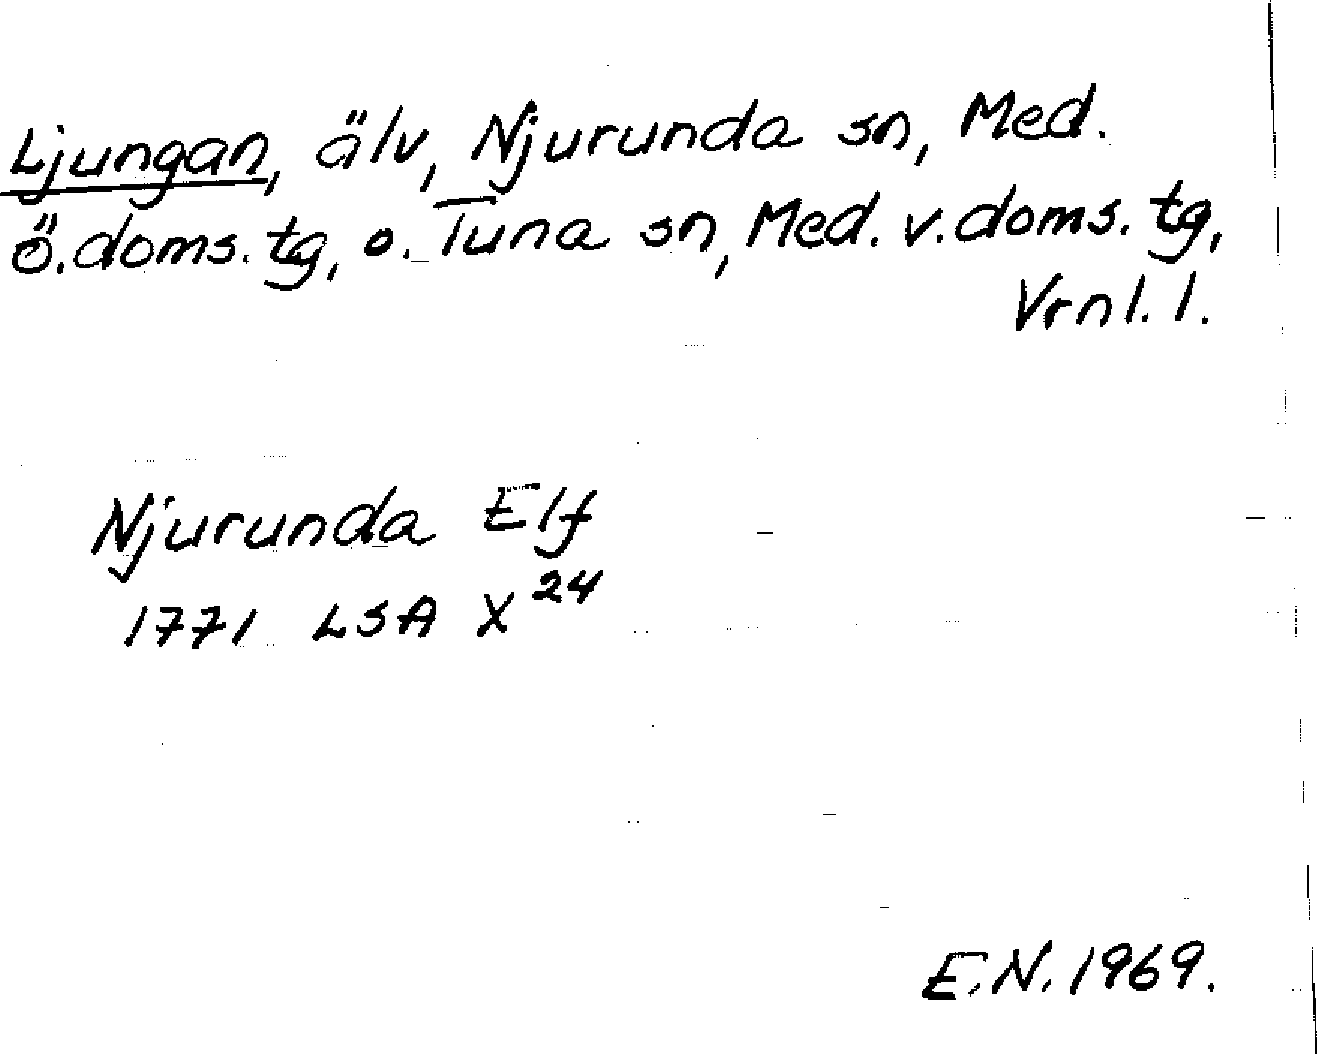 Ljungan, älv, Njurunda sn, Med.
ö.doms.tg, o. Tuna sn, Med. v.doms.tg,
Vrnl.l.
Njurunda Elf
1771 LSA X²⁴
E.N.1969.